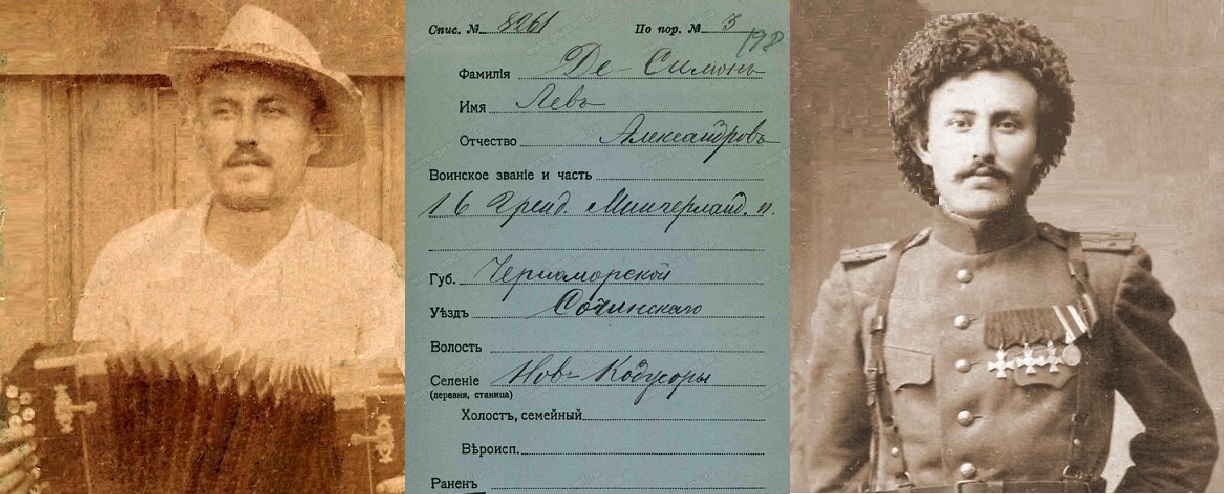 Спис. № 8261 По пор. № 3
198
Фамилія Де-Симонъ
Имя Левъ
Отчество Александровъ
Воинское званіе и часть
16 Гренд. Мингерлайд. п.
Губ. Черноморской
Уѣздъ Сочинскаго
Волость
Селеніе Нов-Кодусоры
(деревня, станица)
Холостъ, семейный
Вѣроисп.
Раненъ